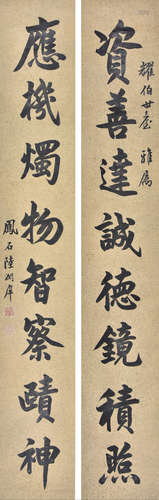 資善達誠德鏡積照
耀伯世臺雅屬
應機燭物智察賾神
鳳石陸潤庠